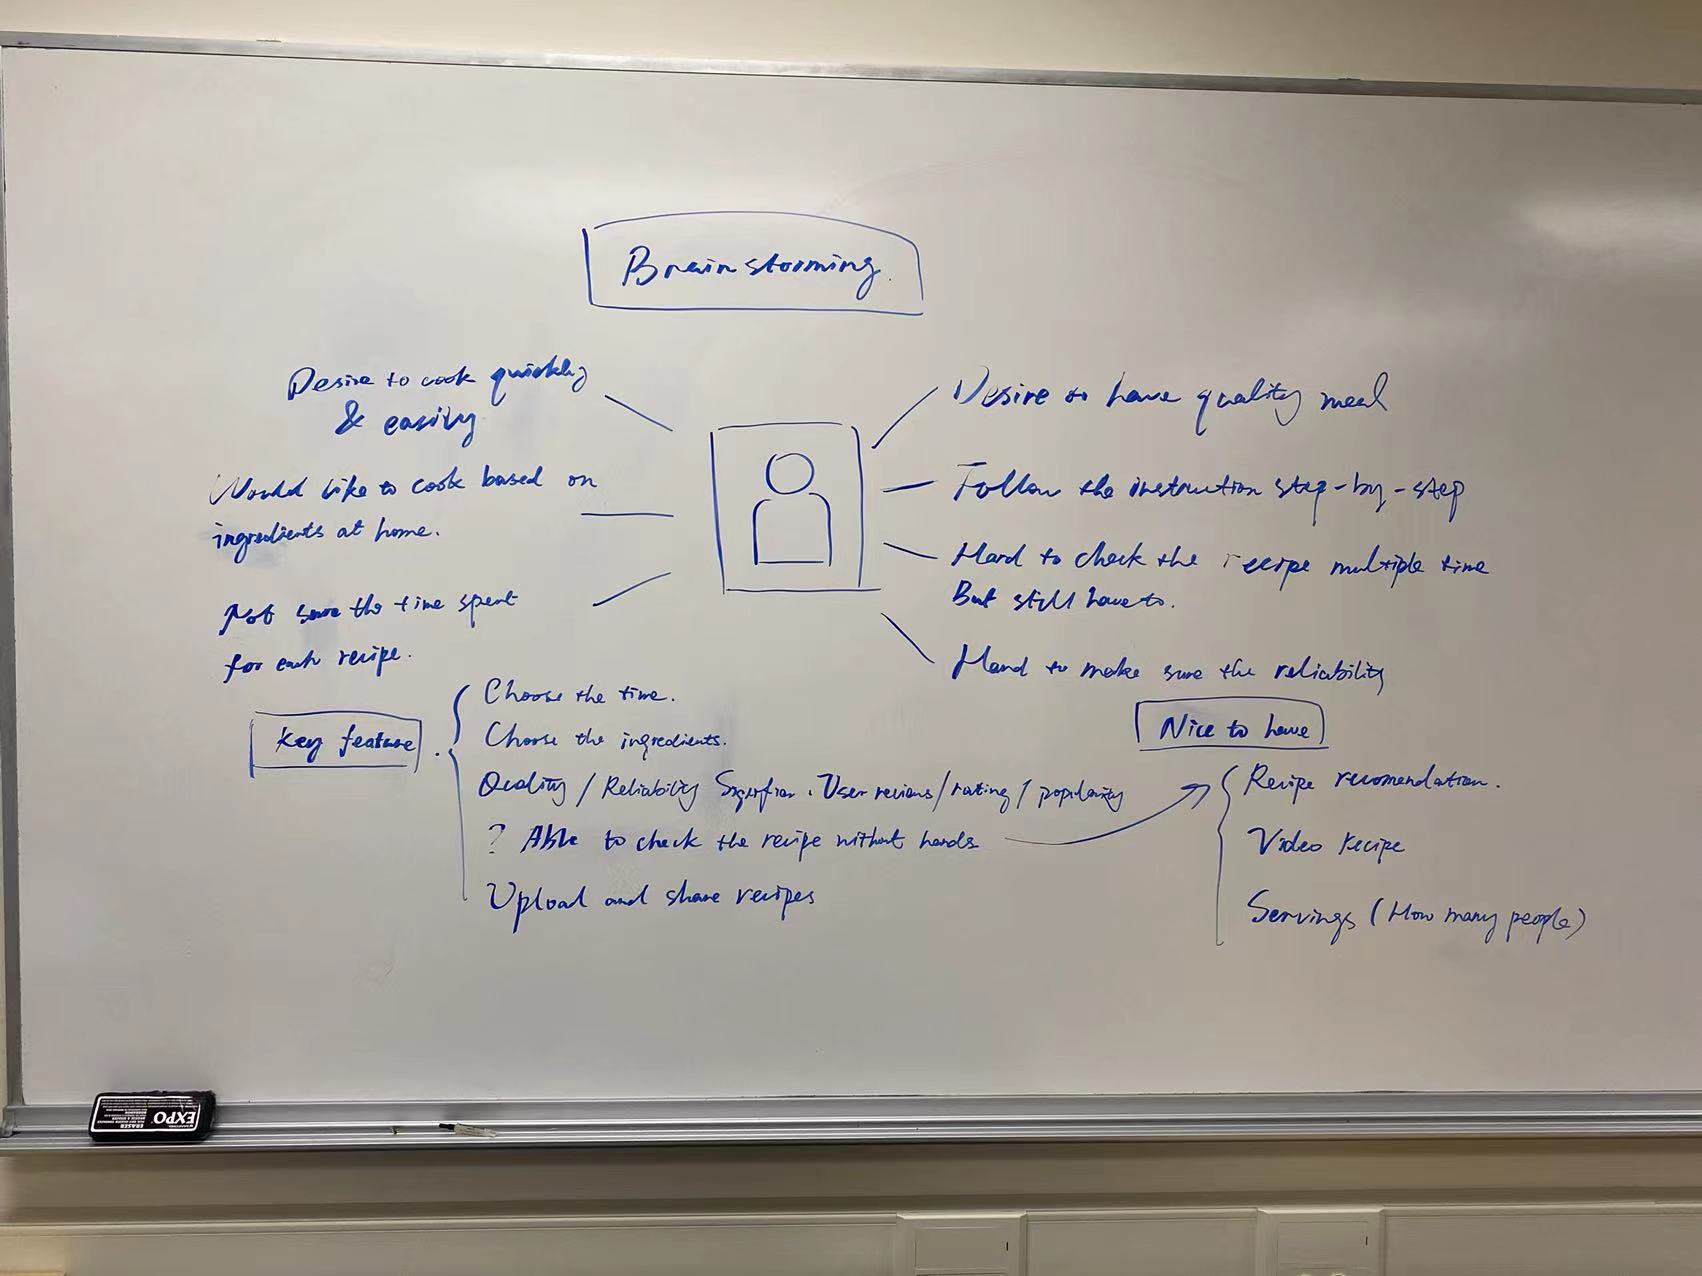 Brainstorming.
Desire to cook quickly
& easily
Would like to cook based on
ingredients at home.
Not sure the time spent
for each recipe.
Desire to have quality meal
Follow the instruction step-by-step
Hard to check the recipe multiple time
But still have to.
Hard to make sure the reliability
Key feature
Choose the time.
Choose the ingredients.
Quality / Reliability User reviews / rating / popularity
? Able to check the recipe without hands
Upload and share recipes
Nice to have
Recipe recomendation.
Video recipe
Servings (How many people)
EXPO
ERASER